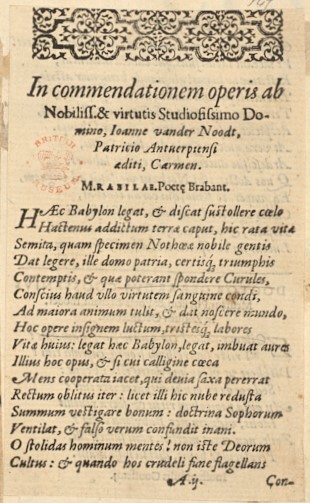 In commendationem operis ab
Nobiliss. & virtutis Studiosissimo Do-
mino, Ioanne vander Noodt,
Patricio Antuerpiensi
æditi, Carmen.
M. RABILAE. Poetę Brabant.
HÆc Babylon legat, & discat sustollere cœlo
Hactenus addictum terræ caput, hic rata vitæ
Semita, quam specimen Nothoæ nobile gentis
Dat legere, ille domo patria, certisq́; triumphis
Contemptis, & quæ poterant spondere Curules,
Conscius haud vllo virtutem sanguine condi,
Ad maiora animum tulit, & dat noscere mundo,
Hoc opere insignem luctum, tristesq́; labores
Vitæ huius: legat hæc Babylon, legat, imbuat aures
Illius hoc opus, & si cui calligine cœca
Mens cooperata iacet, qui deuia saxa pererrat
Rectum oblitus iter: licet illi hic nube reducta
Summum vestigare bonum: doctrina Sophorum
Ventilat, & falso verum confundit inani.
O stolidas hominum mentes! non iste Deorum
Cultus: & quando hos crudeli fune flagellans
A.ij. Con-
BRITISH
MUSEUM